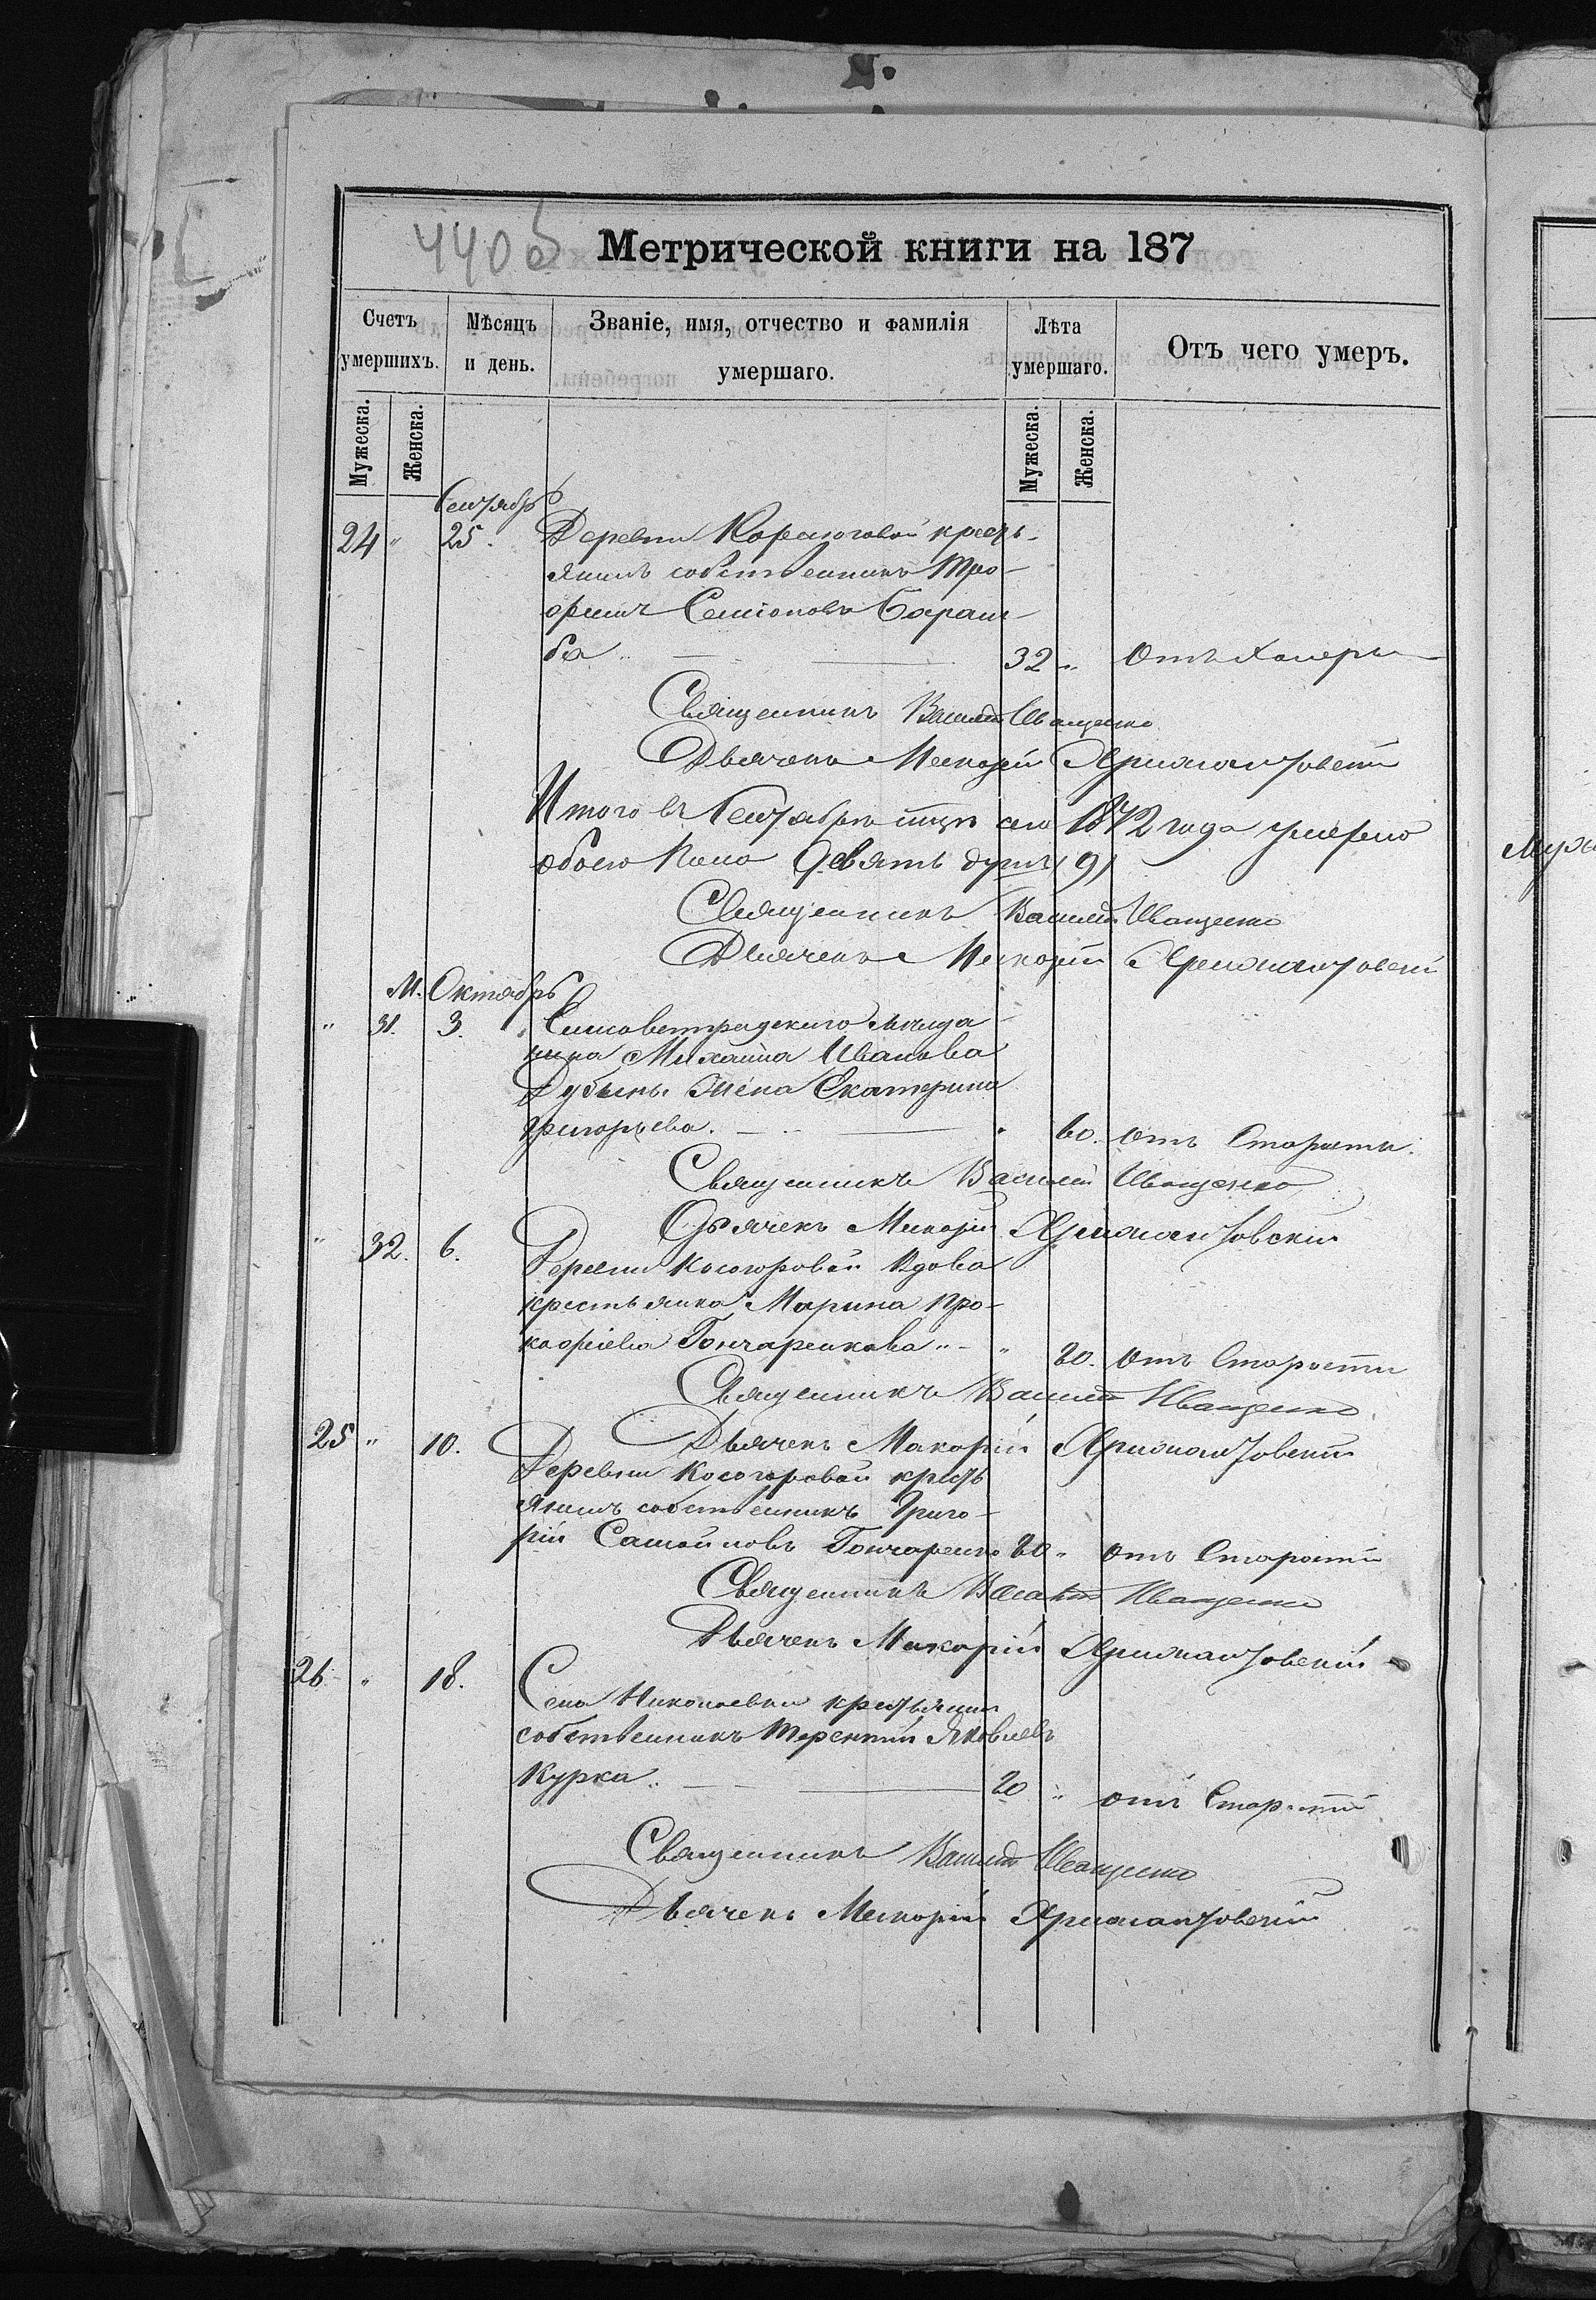 440 об
Метрической книги на 187
Счетъ умершихъ.
Мѣсяцъ и день.
Званіе, имя, отчество и фамилія умершаго.
Лѣта умершаго.
Отъ чего умеръ.
Мужеска.
Женска.
Мужеска.
Женска.
Сентябрь
24 " 25. Деревни крестъ-
янинъ собственникъ Тро-
фимъ Семіоновъ Барам-
ба 32 " Отъ Холеры
Священникъ Василій Иващенко
Дьячекъ Макарій
Итого въ Сентябрѣ м-цѣ сего 1872 года умерло
обоего Пола Девять душъ (9)
Священникъ Василій Иващенко
Дьячекъ Макарій
М. Октябрь
" 31. 3. Елисаветградскаго мѣща-
нина Михаила Иванова
жена Екатерина
Григорьева. " 60. отъ Старости.
Священникъ Василій Иващенко
Дьячекъ Макарій
" 32. 6. Деревни Косогоровой вдова
крестьянка Марина Про-
кофіева Гончаренкова " " 80. отъ Старости
Священникъ Василій Иващенко
Дьячекъ Макарій
25 " 10. Деревни Косогоровой крестъ
янинъ собственникъ Григо-
рій Самойловъ Гончаренко 80 " отъ Старости
Священникъ Василій Иващенко
Дьячекъ Макарій
26 " 18. Села Николаевки крестьянинъ
собственникъ Терентій Яковлевъ
Курка 80 " отъ Старости
Священникъ Василій Иващенко
Дьячекъ Макарій